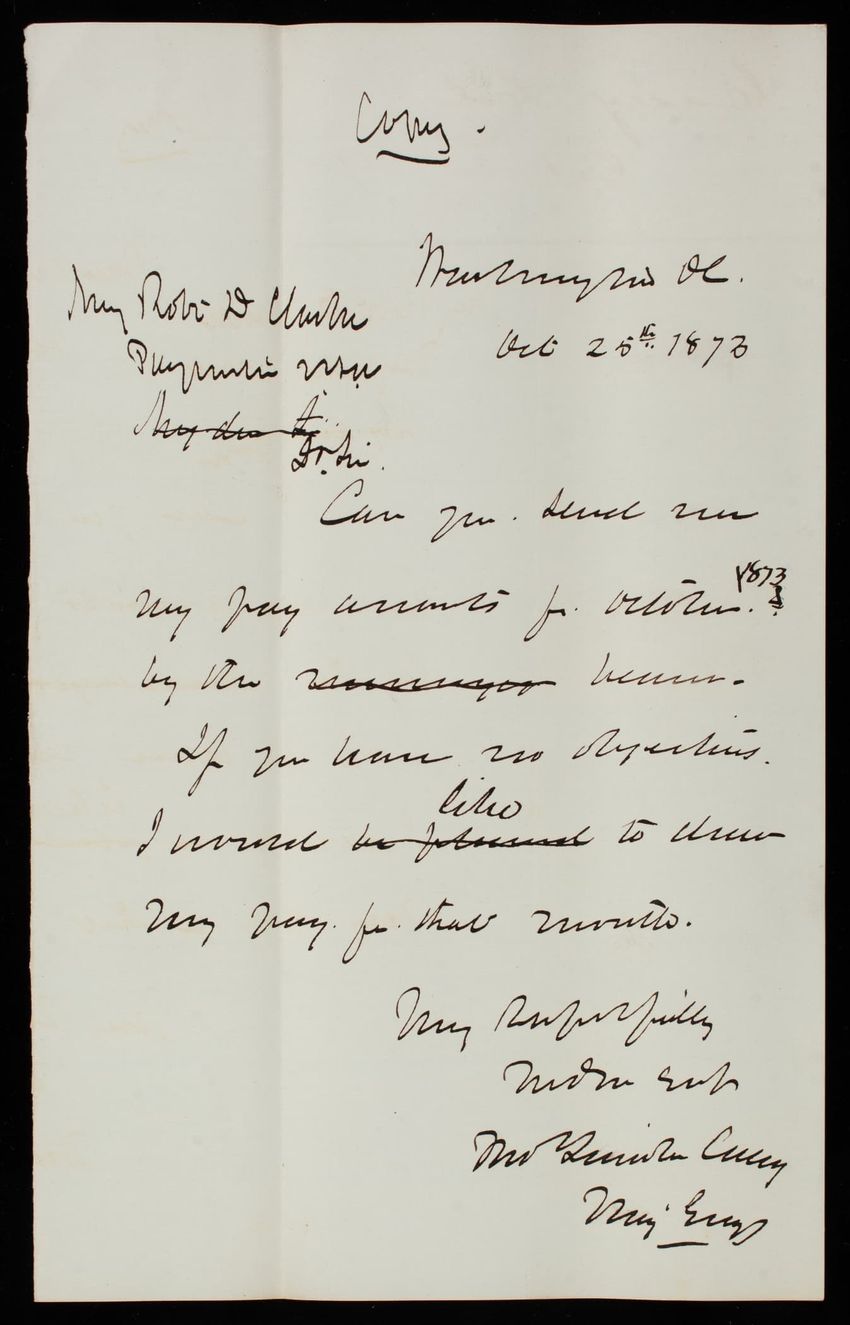 Copy.
Washington DC.
Oct 25th 1873
Maj Robt D Clarke
Paymaster USA
My dear Sir
Dr. Sir.
Can you send me
1873
my pay accounts for October.
by the messenger bearer.
If you have no objections.
like
I would be pleased to draw
my pay for that month.
Very Respectfully
Your Obt Servt
Thos Lincoln Casey
Maj Engs